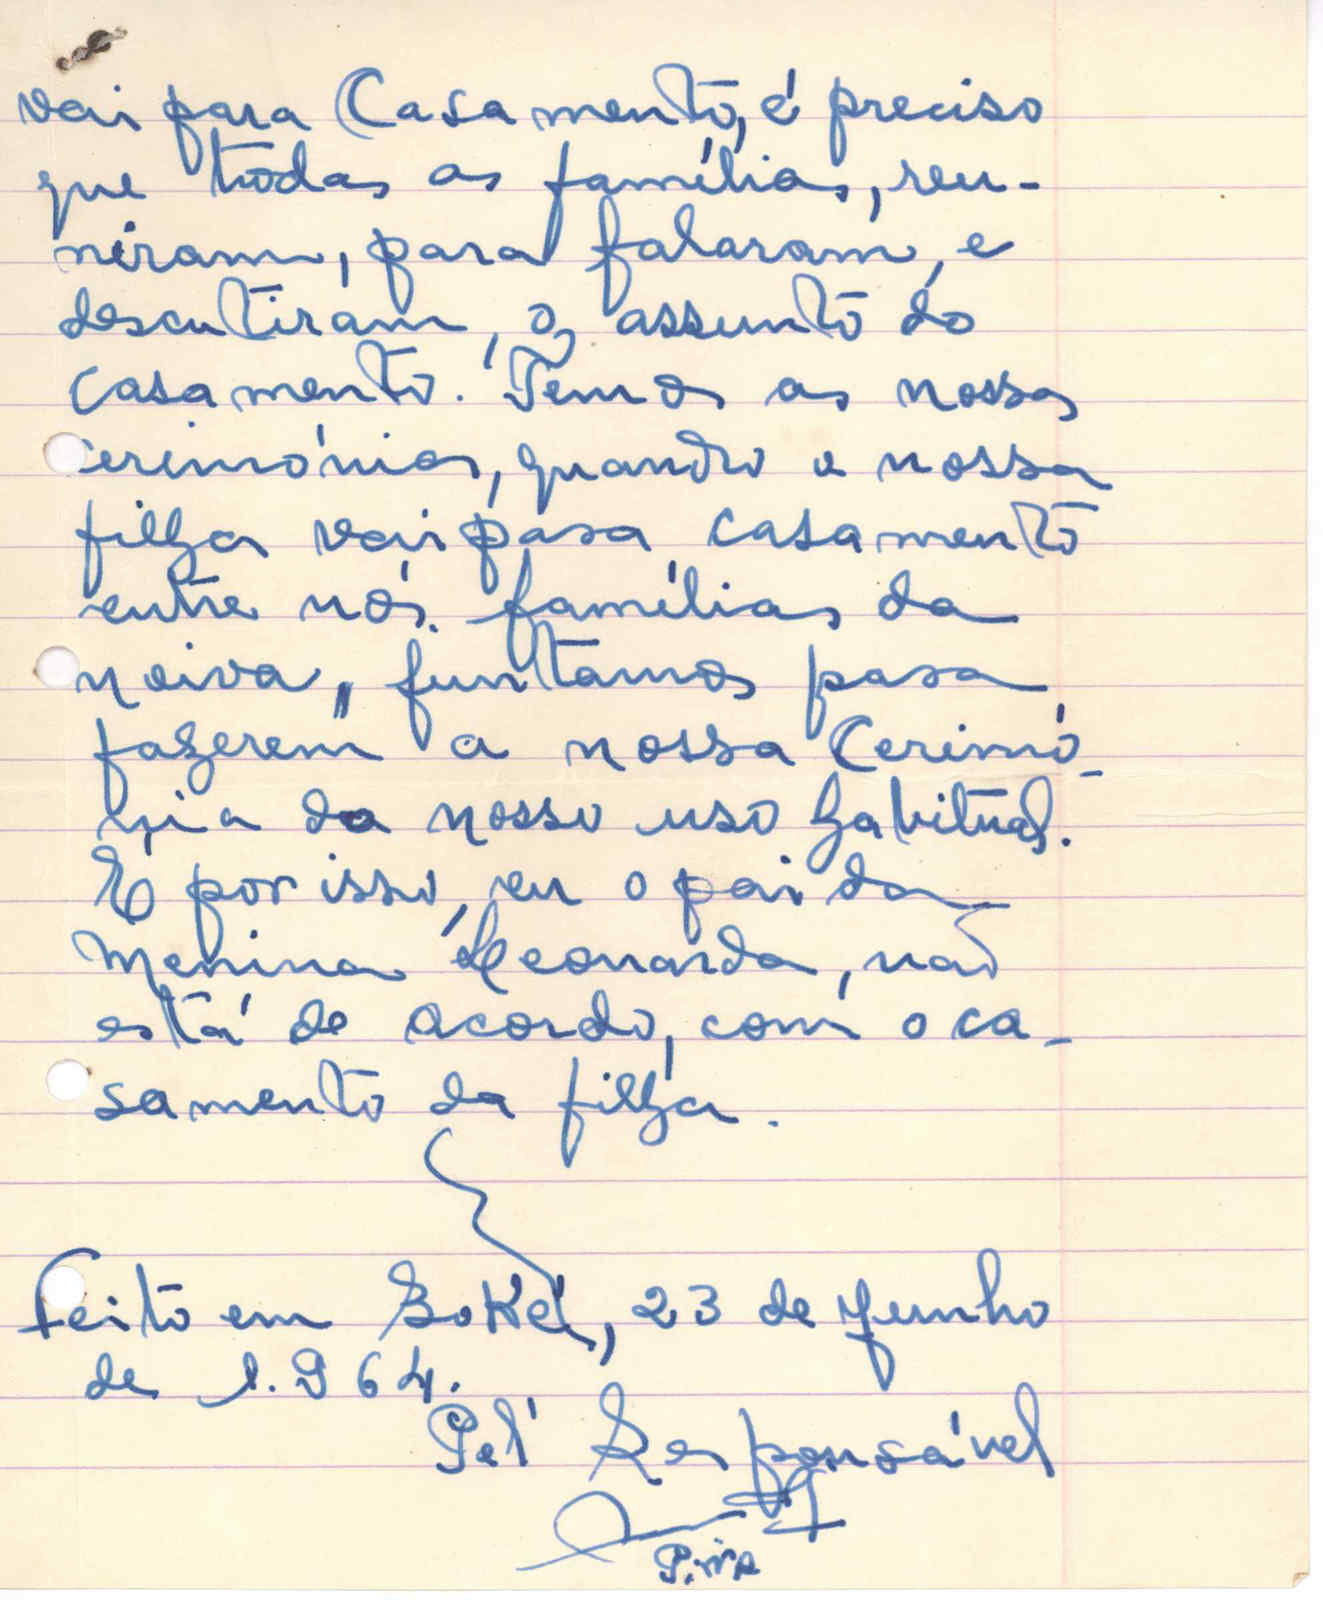 vai para Casamento, é preciso
que todas as famílias, reu-
niram, para falaram, e
descutiram, o assunto do
casamento. Temos as nossas
cerimónias, quando a nossa
filha vai para casamento
entre nós. famílias da
noiva, juntamos para
fazerem a nossa Cerimó-
nia do nosso uso habitual.
E por isso, eu o pai da
Menina Leonarda, não
está de acordo, com o ca-
samento da filha.
Feito em Boké, 23 de Junho
de 1.964.
Pel' Responsável